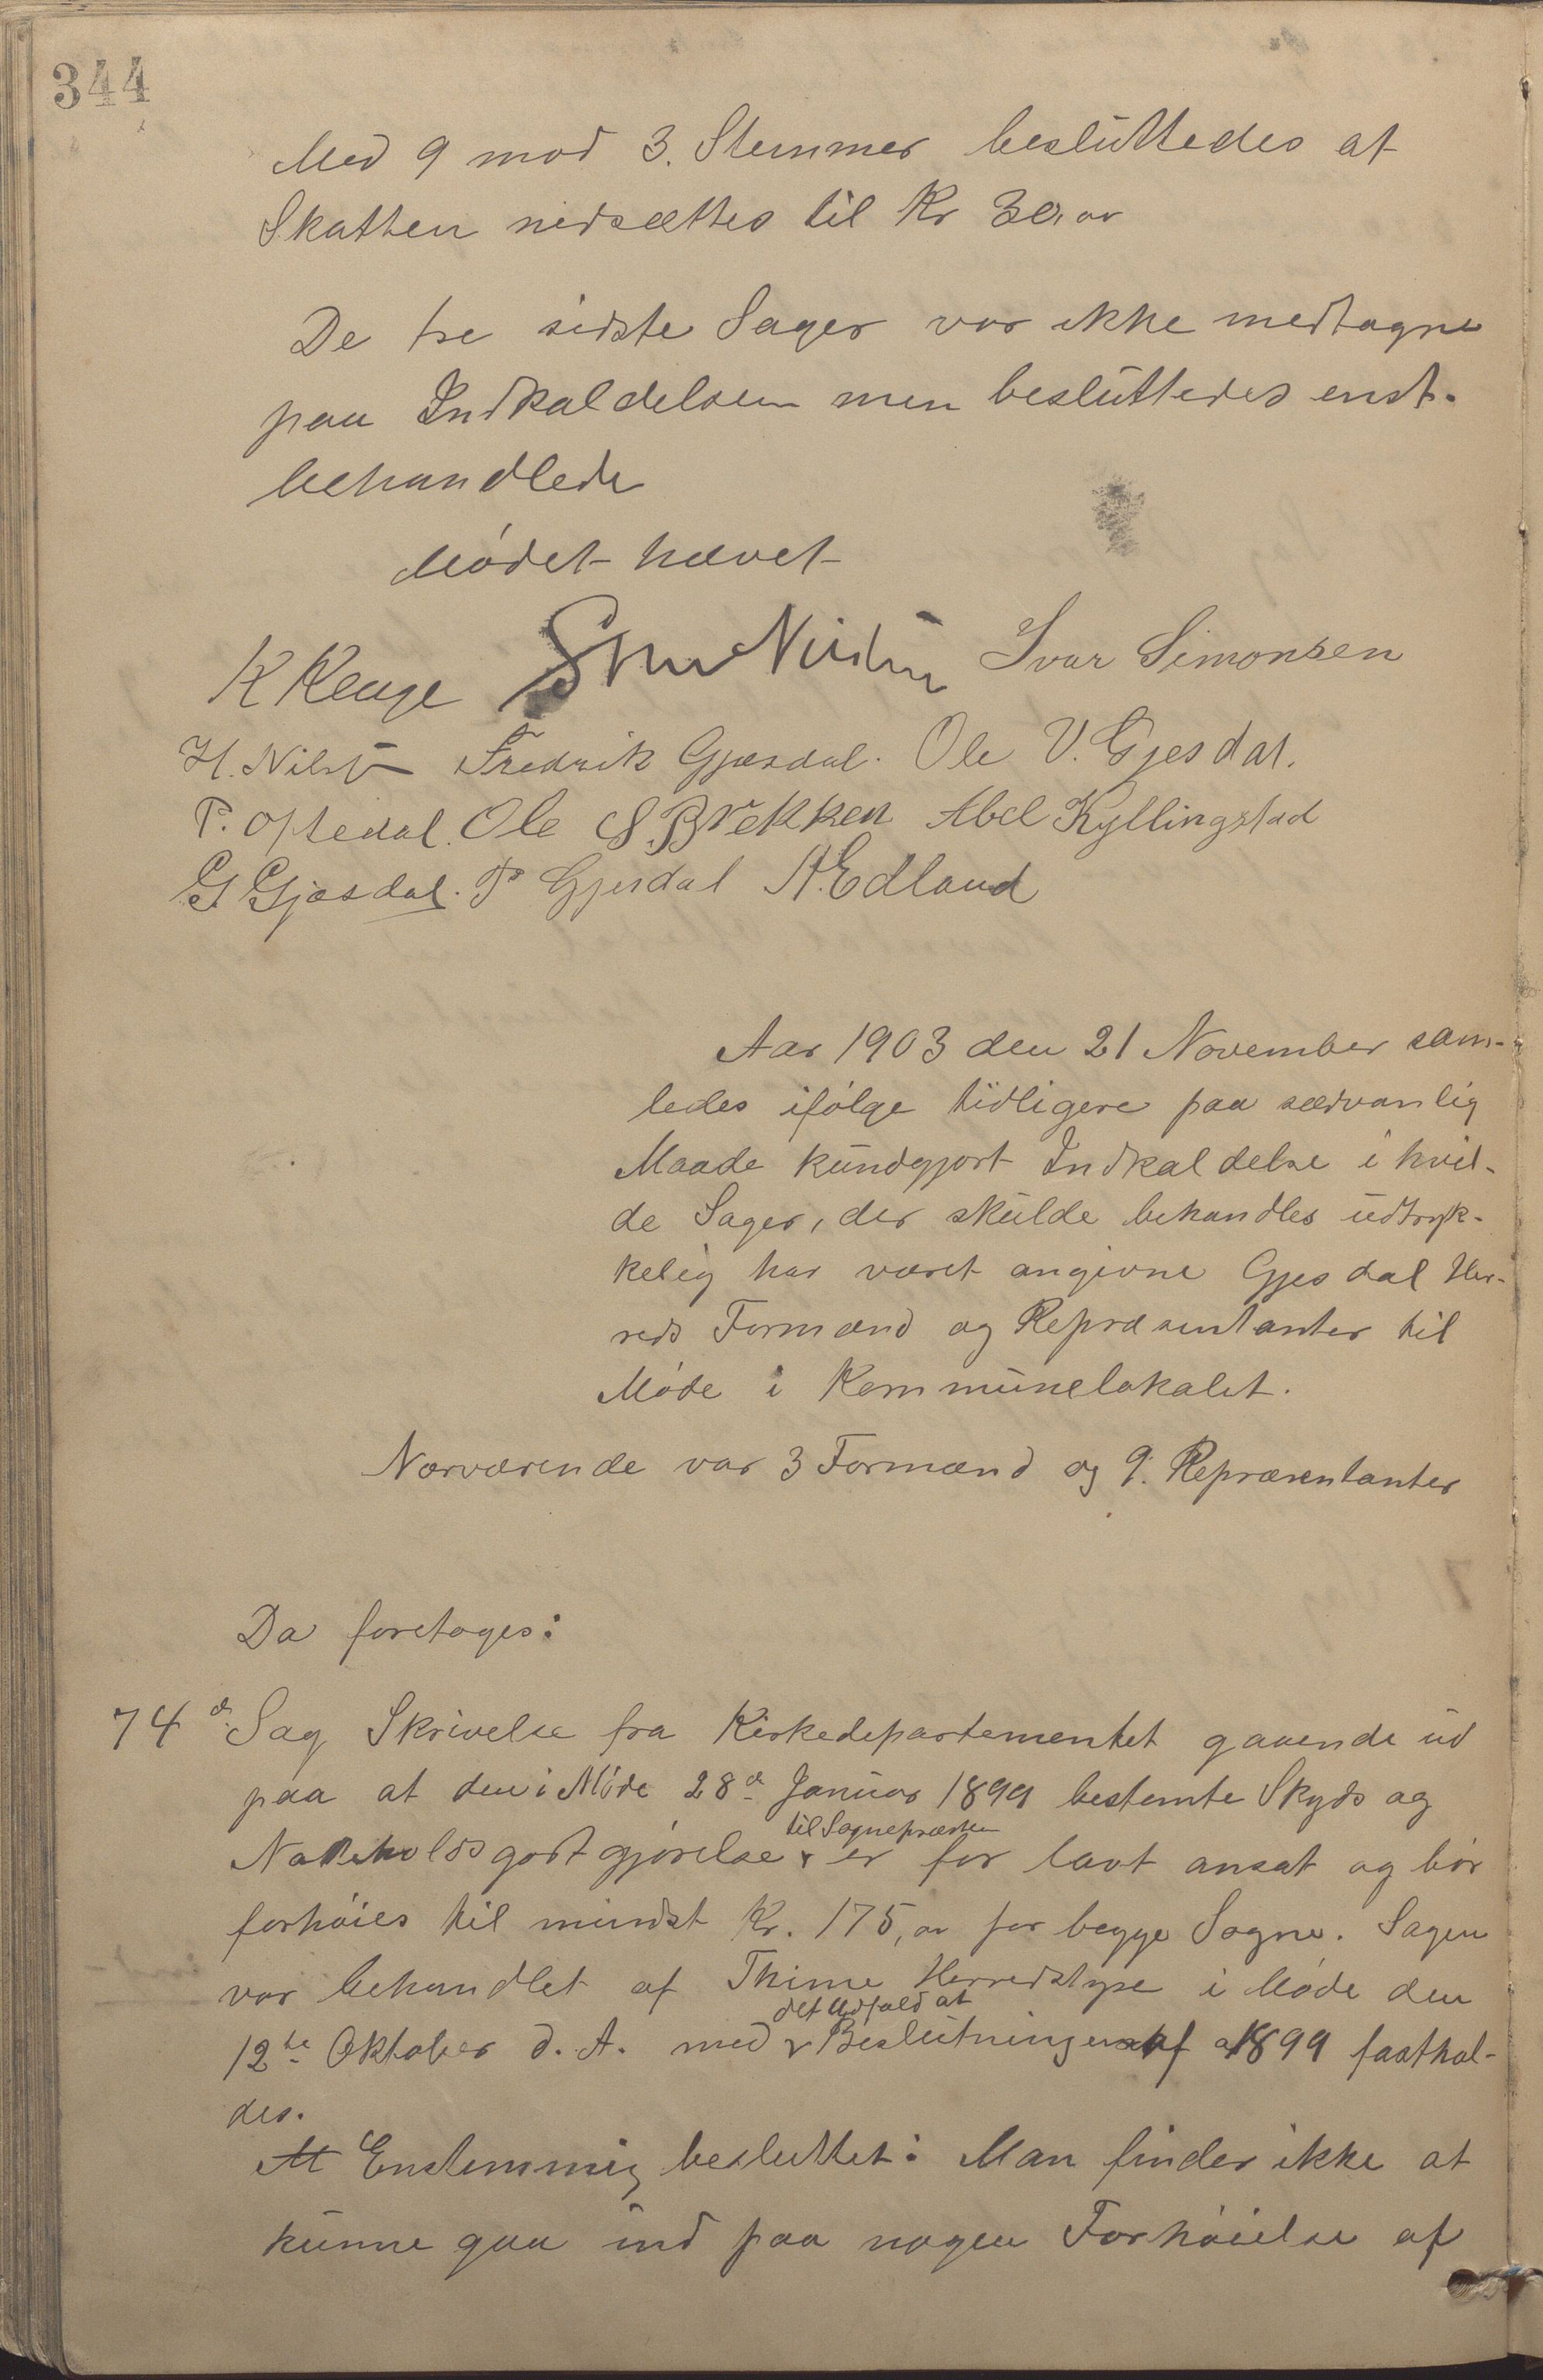 344
Med 9 mod 3. Stemmer besluttedes at
Skatten nedsættes til Kr 30,00
De tre sidste Sager var ikke medtagne
paa Indkaldelsen men besluttedes enst.
behandlede
Mødet hævet
K Kluge Ivar Simonsen
H. Nilsen Fredrik Gjesdal. Ole V. Gjesdal.
T. Oftedal. Ole S. Brekken Abel Kyllingstad
G Gjesdal. T Gjesdal A. Edland
Aar 1903 den 21 November sam-
ledes ifølge tidligere paa sædvanlig
Maade kundgjort Indkaldelse i hvil-
de Sager, der skulde behandles udtryk-
kelig har været angivne Gjesdal Her-
reds Formænd og Repræsentanter til
Møde i Kommunelokalet.
Nærværende var 3 Formænd og 9. Repræsentanter
Da foretoges:
74d Sag Skrivelse fra Kirkedepartementet gaaende ud
paa at den i Møde 28d Januar 1899 bestemte Skyds og
til Sognepræsten
Natteholdsgodtgjørelse er for lavt ansat og bør
forhøies til mindst Kr. 175,00 for begge Sogne. Sagen
var behandlet af Thime Herredstyre i Møde den
det Udfald at
12te Oktober d. A. med Beslutningen af 1899 fasthol-
des.
At Enstemmig besluttet: Man finder ikke at
kunne gaa ind paa nogen Forhøielse af